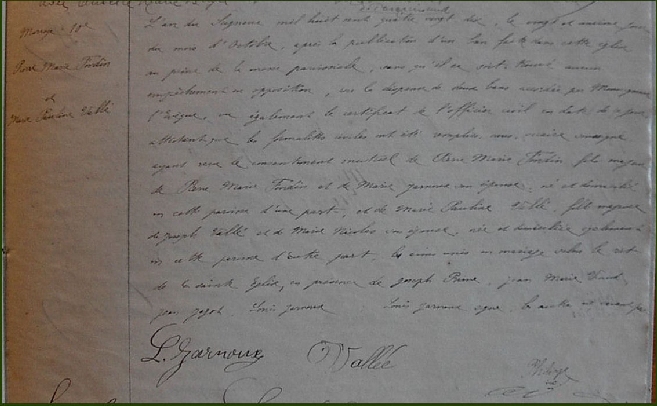 Mariage 10e
Pierre Marie Tardin
et
Marie Pauline Vallé
L'an du Seigneur mil huit cent quatre vingt dix, le vingt et unième jour
du mois d'Octobre, après la publication d'un ban faite dans cette église
au prône de la messe paroissiale, sans qu'il se soit trouvé aucun
empêchement ou opposition, vu la dispense de deux bans accordée par Monseigneur
l'Evêque, vu également le certificat de l'officier civil en date de ce jour
attestant que les formalités civiles ont été remplies, nous, vicaire soussigné
ayant reçu le consentement mutuel de Pierre Marie Tardin, fils majeur
de Pierre Marie Tardin et de Marie Garnoux son épouse, né et domicilié
en cette paroisse d'une part, et de Marie Pauline Vallé, fille majeure
de Joseph Vallé et de Marie Nicolas son épouse, née et domiciliée également
en cette paroisse d'autre part, les avons unis en mariage selon le rit
de la sainte Eglise, en présence de Joseph Pierre, Jean Marie
Jean Louis Garnoux Louis Garnoux signe, les autres ne
L. Garnoux Vallée